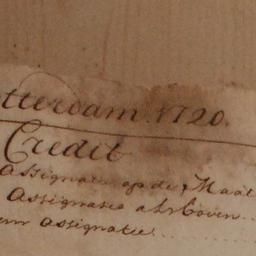 otterdam 1720.
Credit
Assignatie op de Maat
Assignatie als boven
em assignatie